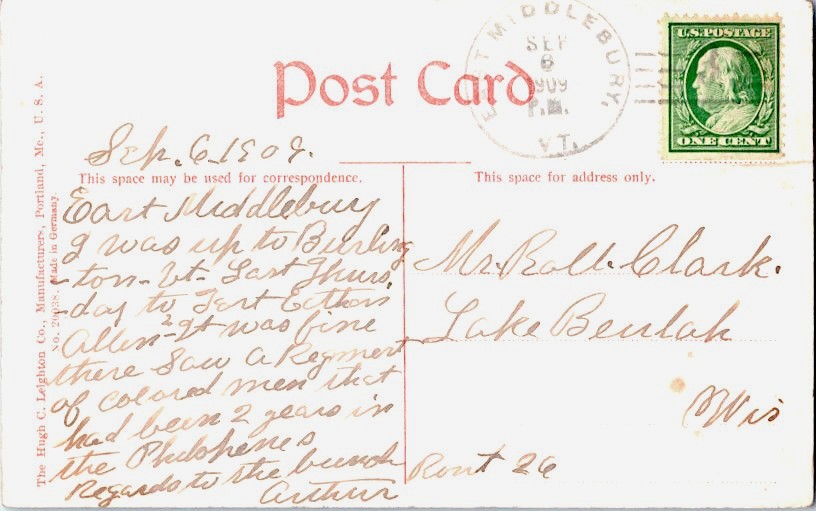 Post Card
EAST MIDDLEBURY,
SEP
6
1909
P.M.
VT.
U.S. POSTAGE
ONE CENT
Sep. 6 1909.
This space may be used for correspondence.
This space for address only.
East Middlebury
I was up to Burling
-ton-Vt-Last Thurs,
-day to Fort Eathan
Allen- It was fine
there Saw a Regment
of colored men that
had been 2 years in
the Philphenes
Regards to the bunch
Arthur
Mr. Clark.
Lake Beulah
Wis
Rout 26
The Hugh C. Leighton Co., Manufacturers, Portland, Me., U. S. A.
No. 20938. Made in Germany.